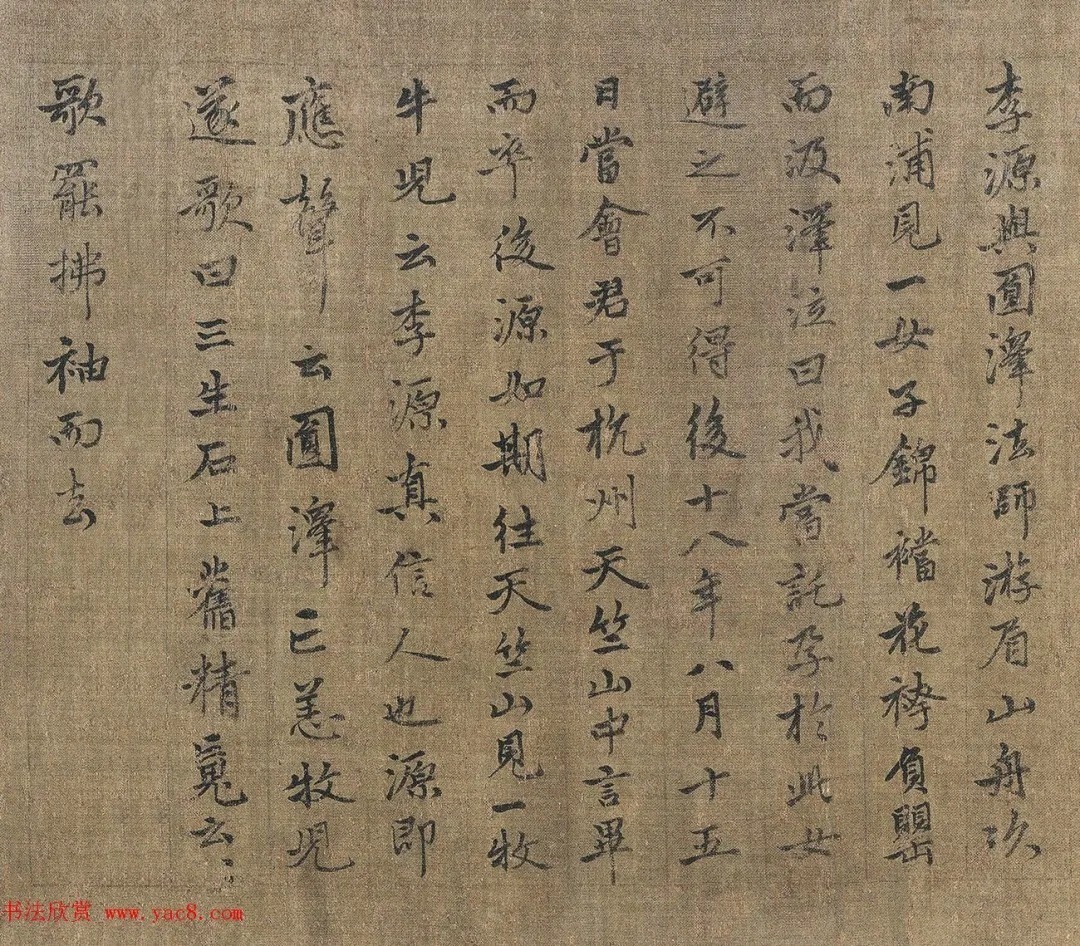 李源與圓澤法師游眉山舟次
南浦見一女子錦襠花袴負罌
而汲澤泣曰我當託孕於此女
避之不可得後十八年八月十五
日當會君于杭州天竺山中言畢
而卒後源如期往天竺山見一牧
牛児云李源真信人也源即
應聲云圓澤已恙牧児
遂歌曰三生石上舊精䰟云〻
歌罷拂袖而去
书法欣赏 www.yac8.com